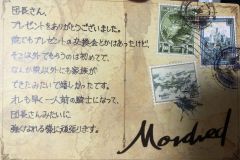 団長さん、
プレゼントをありがとうございました。
僕でもプレゼントの交換会とかはあったけど、
そこ以外でもらうのは初めてで、
なんか僕以外にも家族が
できたみたいで嬉しかったです。
オレも早く一人前の騎士になって、
団長さんみたいに
強くなれる様に頑張ります。
Mordred